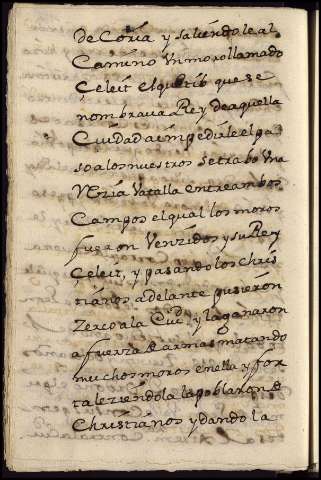 de Coria y saliendole al
Camino Vn moro llamado
Çeleit elquetib que se
nombraua Rey de aquella
Ciudad a impedirle el pa
so a los nuestros se trabo Vna
Rezia Vatalla entre ambos
Campos el qual los moros
fueron Venzidos y su Rey
Çeleit, y pasando los chris
tianos adelante pusieron
zerco a la Ciud. y la ganaron
a fuerza de armas matando
muchos moros en ella y for
taleziendola la poblaron de
Christianos y dando la